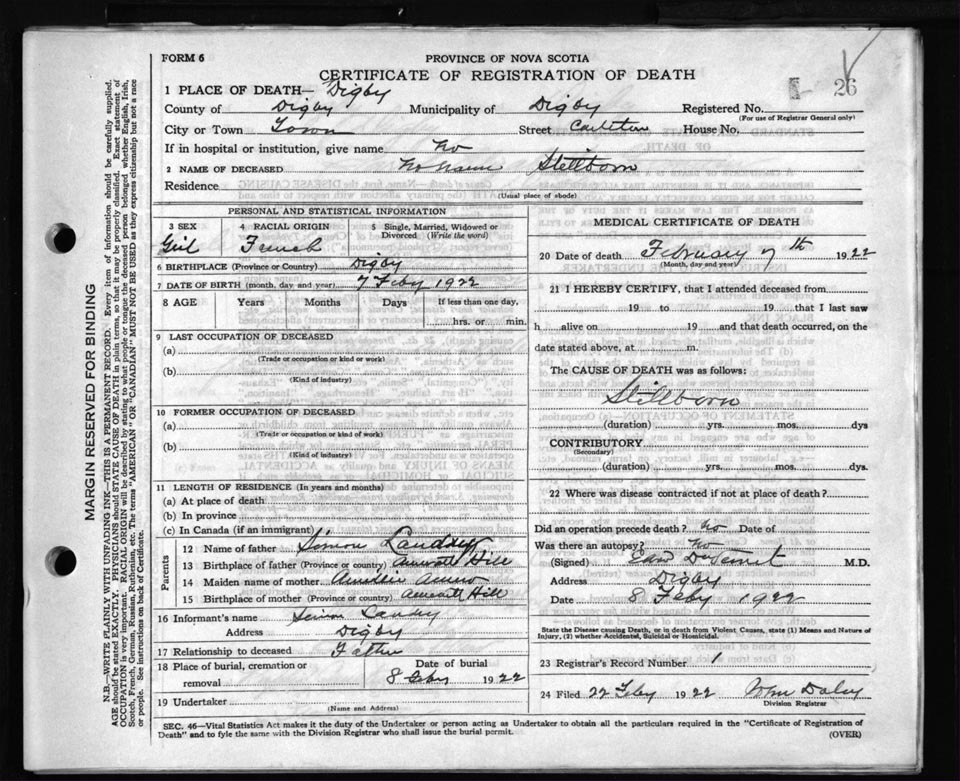 FORM 6
PROVINCE OF NOVA SCOTIA
CERTIFICATE OF REGISTRATION OF DEATH
26
1 PLACE OF DEATH— Digby
County of Digby Municipality of Digby Registered No.
(For use of Registrar General only)
City or Town Town Street Carleton House No.
If in hospital or institution, give name No
2 NAME OF DECEASED No Name Stillborn
Residence
(Usual place of abode)
PERSONAL AND STATISTICAL INFORMATION
3 SEX 4 RACIAL ORIGIN 5 Single, Married, Widowed or Divorced (Write the word)
Girl French
6 BIRTHPLACE (Province or Country) Digby
7 DATE OF BIRTH (month, day and year) 7 Feby 1922
8 AGE Years Months Days If less than one day,
hrs. or min.
9 LAST OCCUPATION OF DECEASED
(a)
(Trade or occupation or kind or work)
(b)
(Kind of industry)
10 FORMER OCCUPATION OF DECEASED
(a)
(Trade or occupation or kind of work)
(b)
(Kind of industry)
11 LENGTH OF RESIDENCE (In years and months)
(a) At place of death
(b) In province
(c) In Canada (if an immigrant)
Parents
12 Name of father Simon Landry
13 Birthplace of father (Province or country) Hill
14 Maiden name of mother
15 Birthplace of mother (Province or country) Hill
16 Informant's name Simon Landry
Address Digby
17 Relationship to deceased Father
18 Place of burial, cremation or removal Date of burial
8 Feby 1922
19 Undertaker
(Name and Address)
MEDICAL CERTIFICATE OF DEATH
20 Date of death February 7th 1922
(Month, day and year)
21 I HEREBY CERTIFY, that I attended deceased from
19 to 19 that I last saw
h alive on 19 and that death occurred, on the
date stated above, at m.
The CAUSE OF DEATH was as follows:
Stillborn
(duration) yrs. mos. dys
CONTRIBUTORY
(Secondary)
(duration) yrs. mos. dys.
22 Where was disease contracted if not at place of death?
Did an operation precede death? No Date of
Was there an autopsy? No
(Signed) M.D.
Address Digby
Date 8 Feby 1922
State the Disease causing Death, or is death from Violent Causes, state (1) Means and Nature of
Injury, (2) whether Accidental, Suicidal or Homicidal.
23 Registrar's Record Number 1
24 Filed 22 Feby 1922 Wm Daley
Division Registrar
SEC. 46—Vital Statistics Act makes it the duty of the Undertaker or person acting as Undertaker to obtain all the particulars required in the "Certificate of Registration of
Death" and to fyle the same with the Division Registrar who shall issue the burial permit.
(OVER)
MARGIN RESERVED FOR BINDING
N.B.—WRITE PLAINLY WITH UNFADING INK—THIS IS A PERMANENT RECORD. Every item of information should be carefully supplied.
AGE should be stated EXACTLY. PHYSICIANS should STATE CAUSE OF DEATH in plain terms, so that it may be properly classified. Exact statement of
OCCUPATION is very important. RACIAL ORIGIN will be described by stating to what people or tongue the deceased person belonged whether English, Irish,
Scotch, French, German, Russian, Ruthenian, etc. The terms "AMERICAN" OR "CANADIAN" MUST NOT BE USED as they express citizenship but not a race
or people. See instructions on back of Certificate.